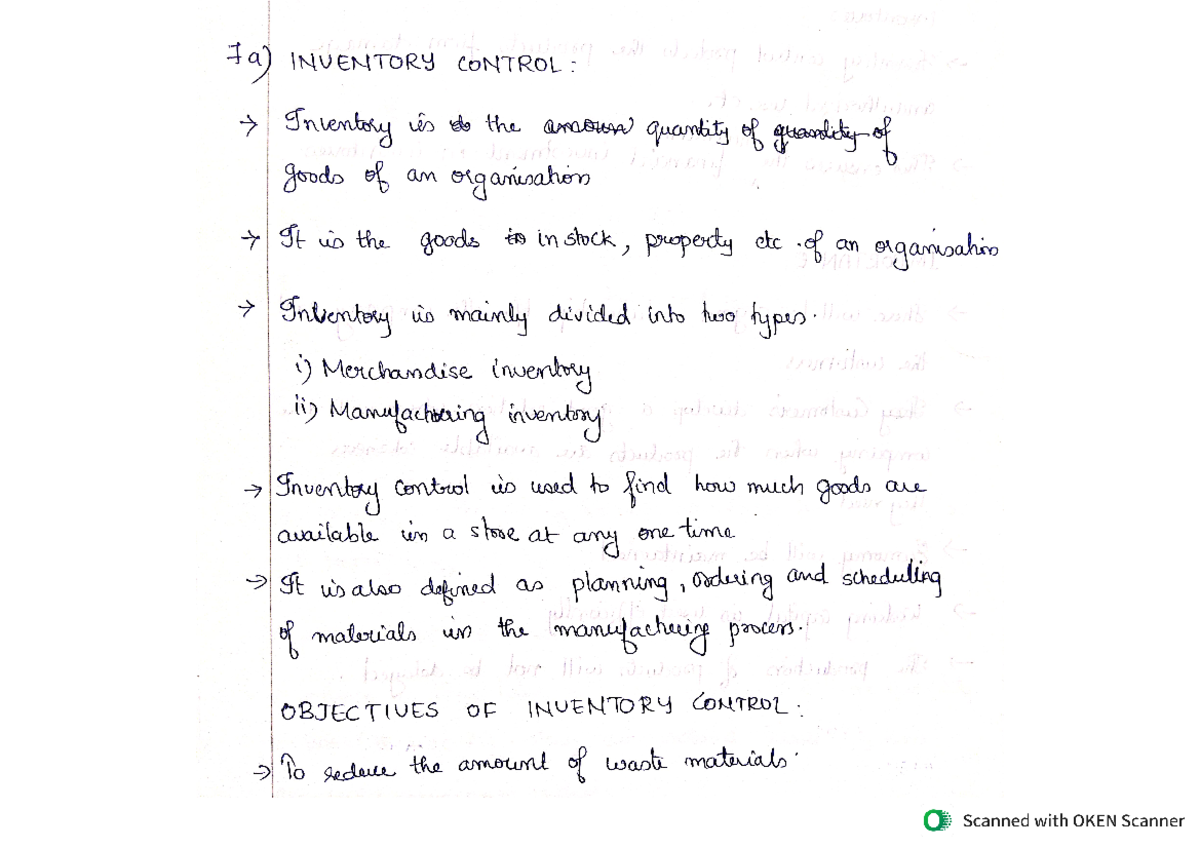 7a) INVENTORY CONTROL:
→ Inventory is the amoun quantity of quandity of
goods of an organisation
→ It is the goods in in stock, property etc. of an organisation
→ Inventory is mainly divided into two types.
i) Merchandise inventory
ii) Manufacturing inventory
→ Inventory control is used to find how much goods are
available in a store at any one time
→ It is also defined as planning, ordering and scheduling
of materials in the manufacturing process.
OBJECTIVES OF INVENTORY CONTROL:
→ To reduce the amount of waste materials.
Scanned with OKEN Scanner